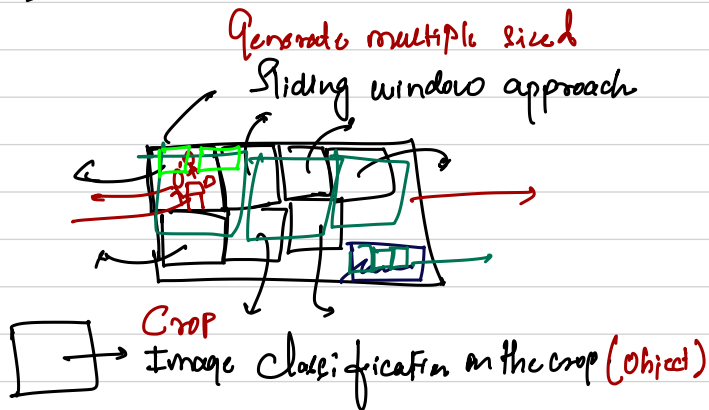 Generate multiple sized
Sliding window approach
Crop
Image Classification on the crop (Object)